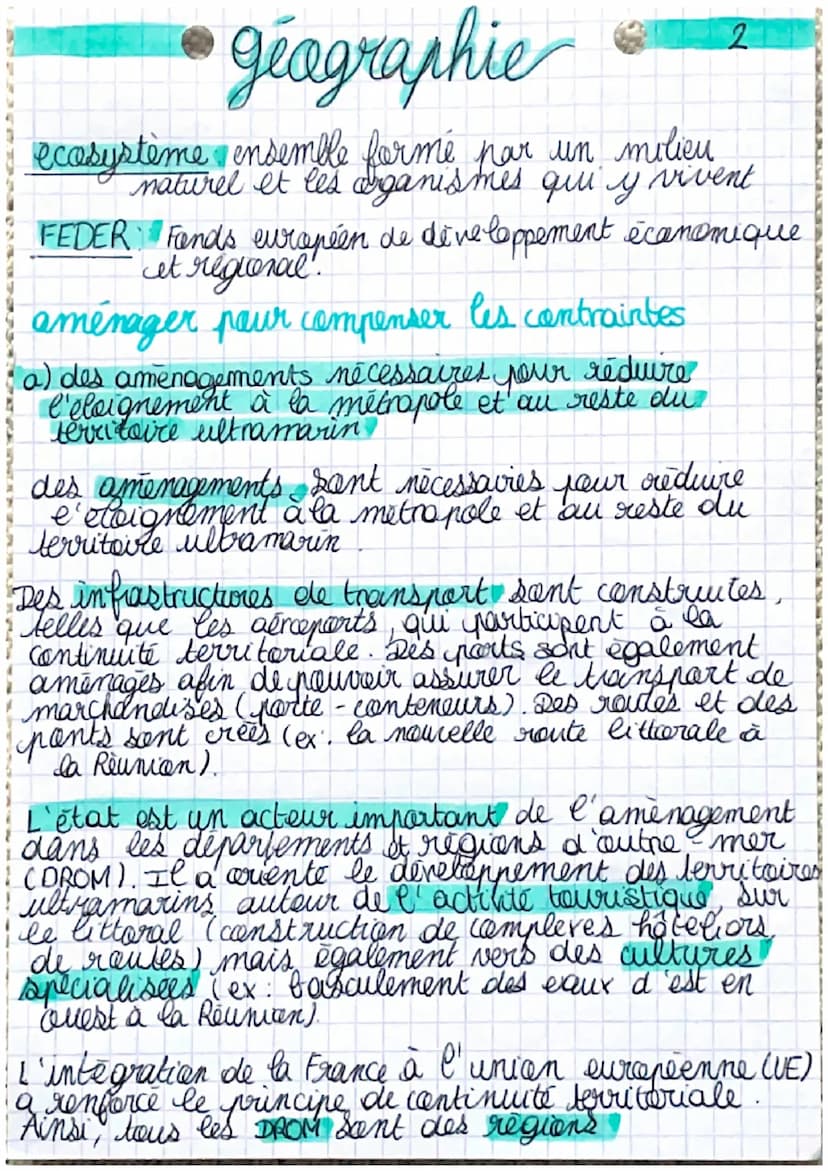 géographie
2
ecosystème : ensemble formé par un milieu
naturel et les organismes qui y vivent
FEDER : Fonds européen de développement économique
et régional.
aménager pour compenser les contraintes
a) des aménagements nécessaires pour réduire
l'éloignement à la métropole et au reste du
territoire ultramarin
des aménagements sont nécessaires pour réduire
l'éloignement à la métropole et au reste du
territoire ultramarin
Des infrastructures de transport sont construites,
telles que les aéroports, qui participent à la
continuité territoriale. Des ports sont également
aménagés afin de pouvoir assurer le transport de
marchandises (porte-conteneurs). Des routes et des
ponts sont créés (ex: la nouvelle route littorale à
la Réunion).
L'état est un acteur important de l'aménagement
dans les départements et régions d'outre-mer
(DROM). Il a orienté le développement des territoires
ultramarins autour de l'activité touristique, sur
le littoral (construction de complexes hôteliers,
de routes) mais également vers des cultures
spécialisées (ex: basculement des eaux d'est en
ouest à la Réunion).
L'intégration de la France à l'union européenne (UE)
a renforcé le principe de continuité territoriale.
Ainsi, tous les DROM sont des régions